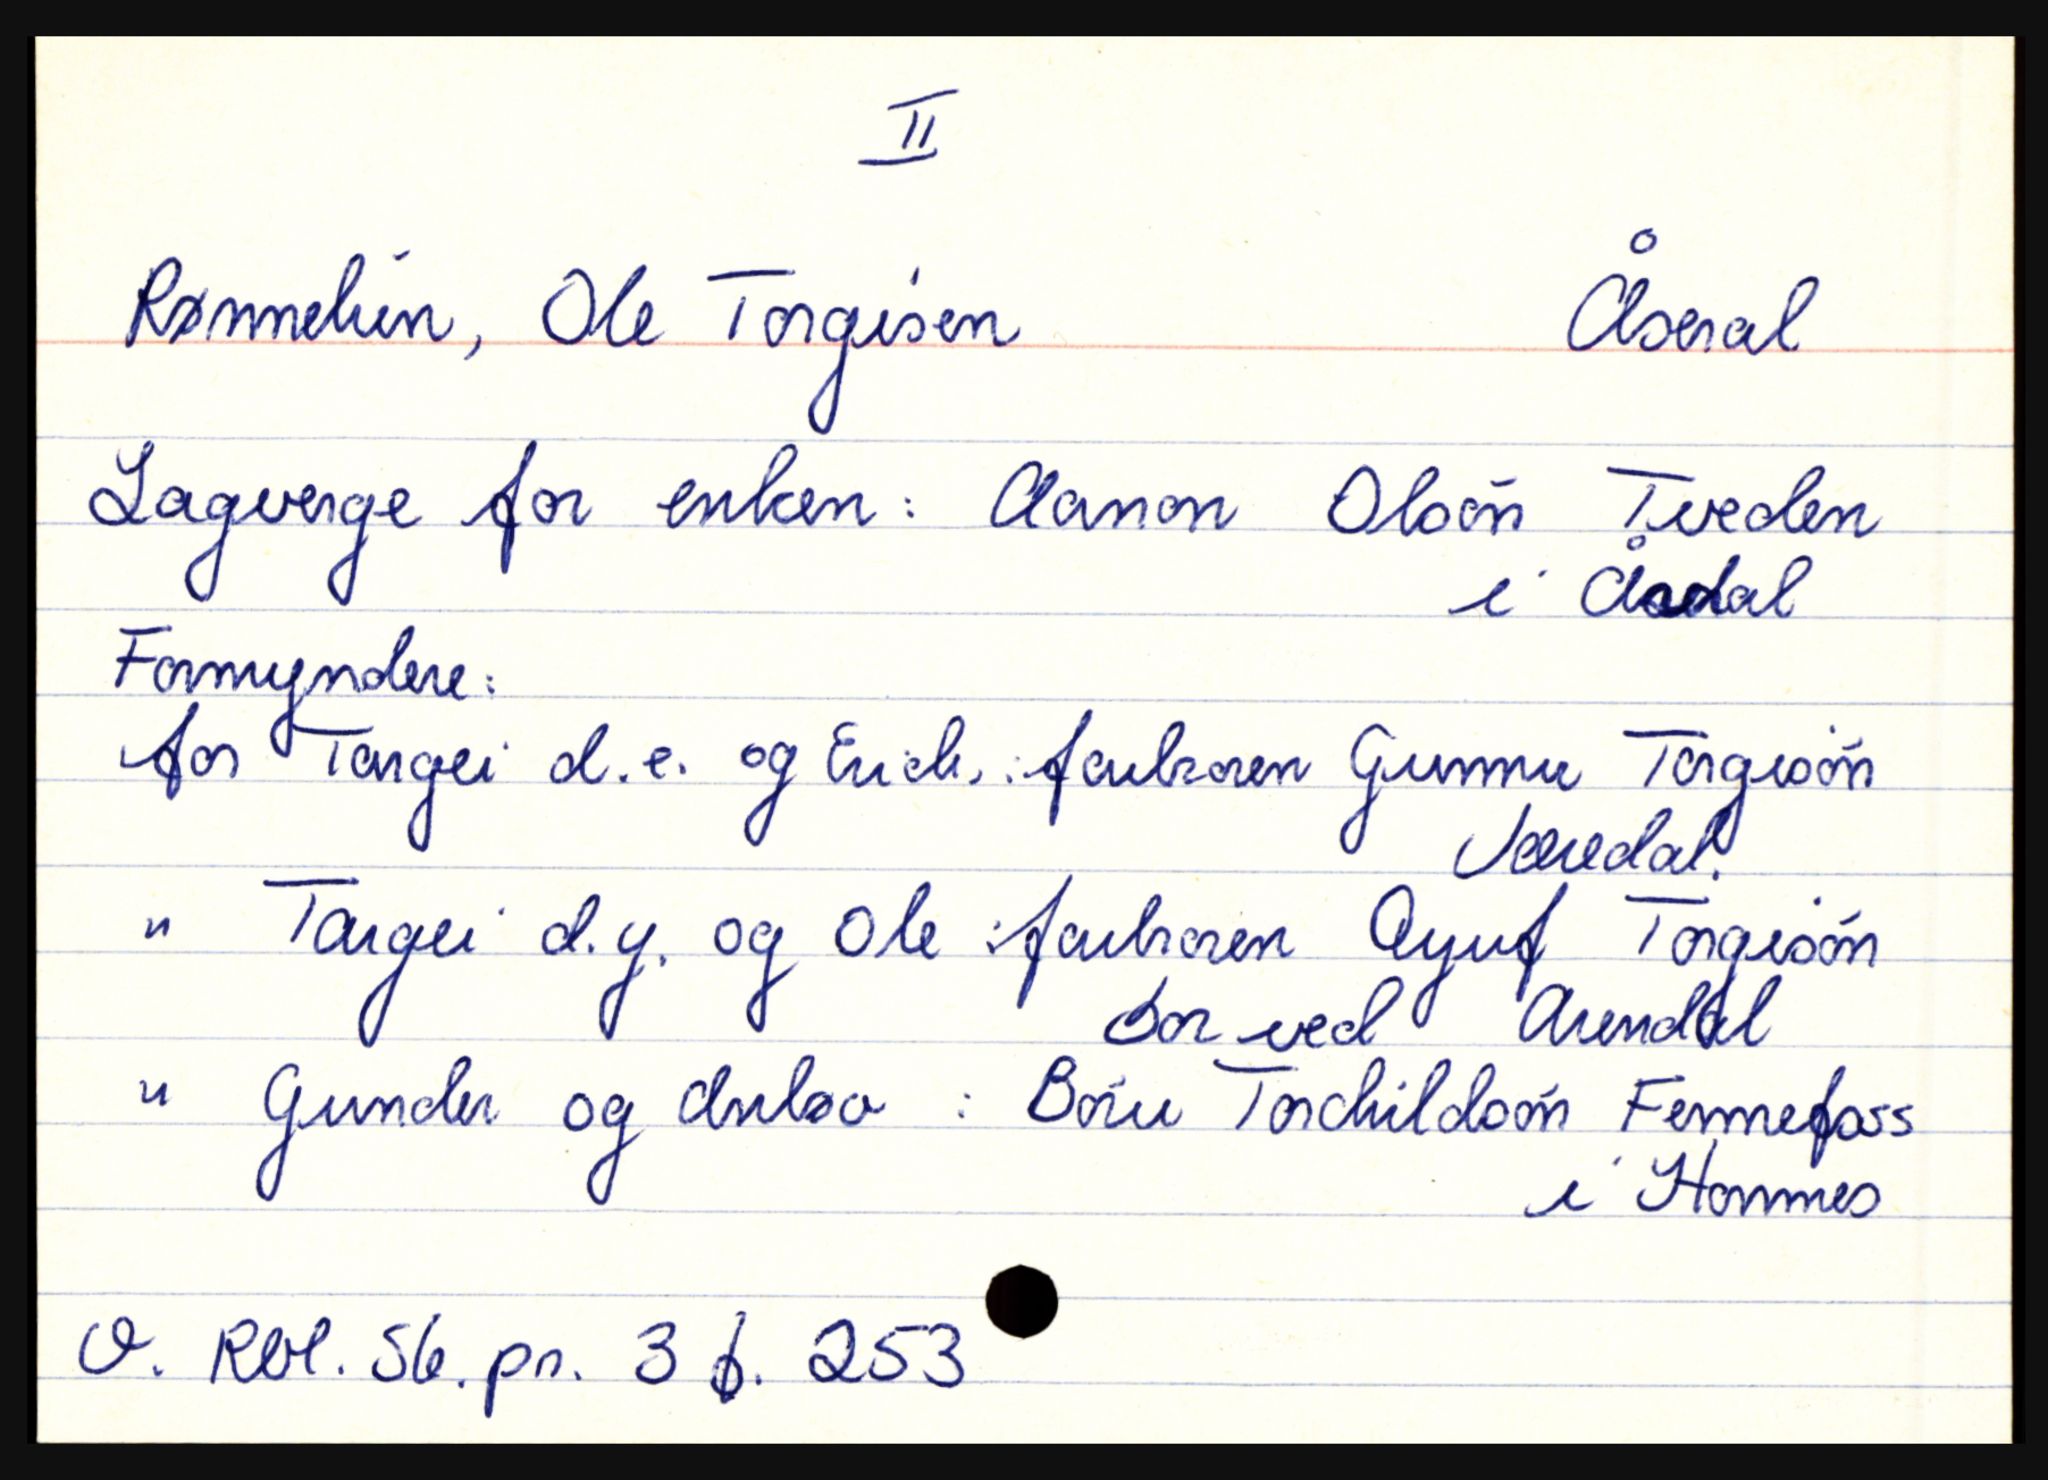 II
Rønnelien, Ole Torgisen Åseral
Lagverge for enken: Aanon Olsön Tveden
i Åsdal
Formyndere:
for Targei d.e. og Erich.: farbroren Gunnu Torgisön
" Targei d.y. og Ole : farbroren Ayuf Torgisön
bor ved Arendal
" Gunder og Anløv : Böru Torchildsön Fennefoss
i Hornnes
V. Rbl. Sk. pr. 3 b. 253